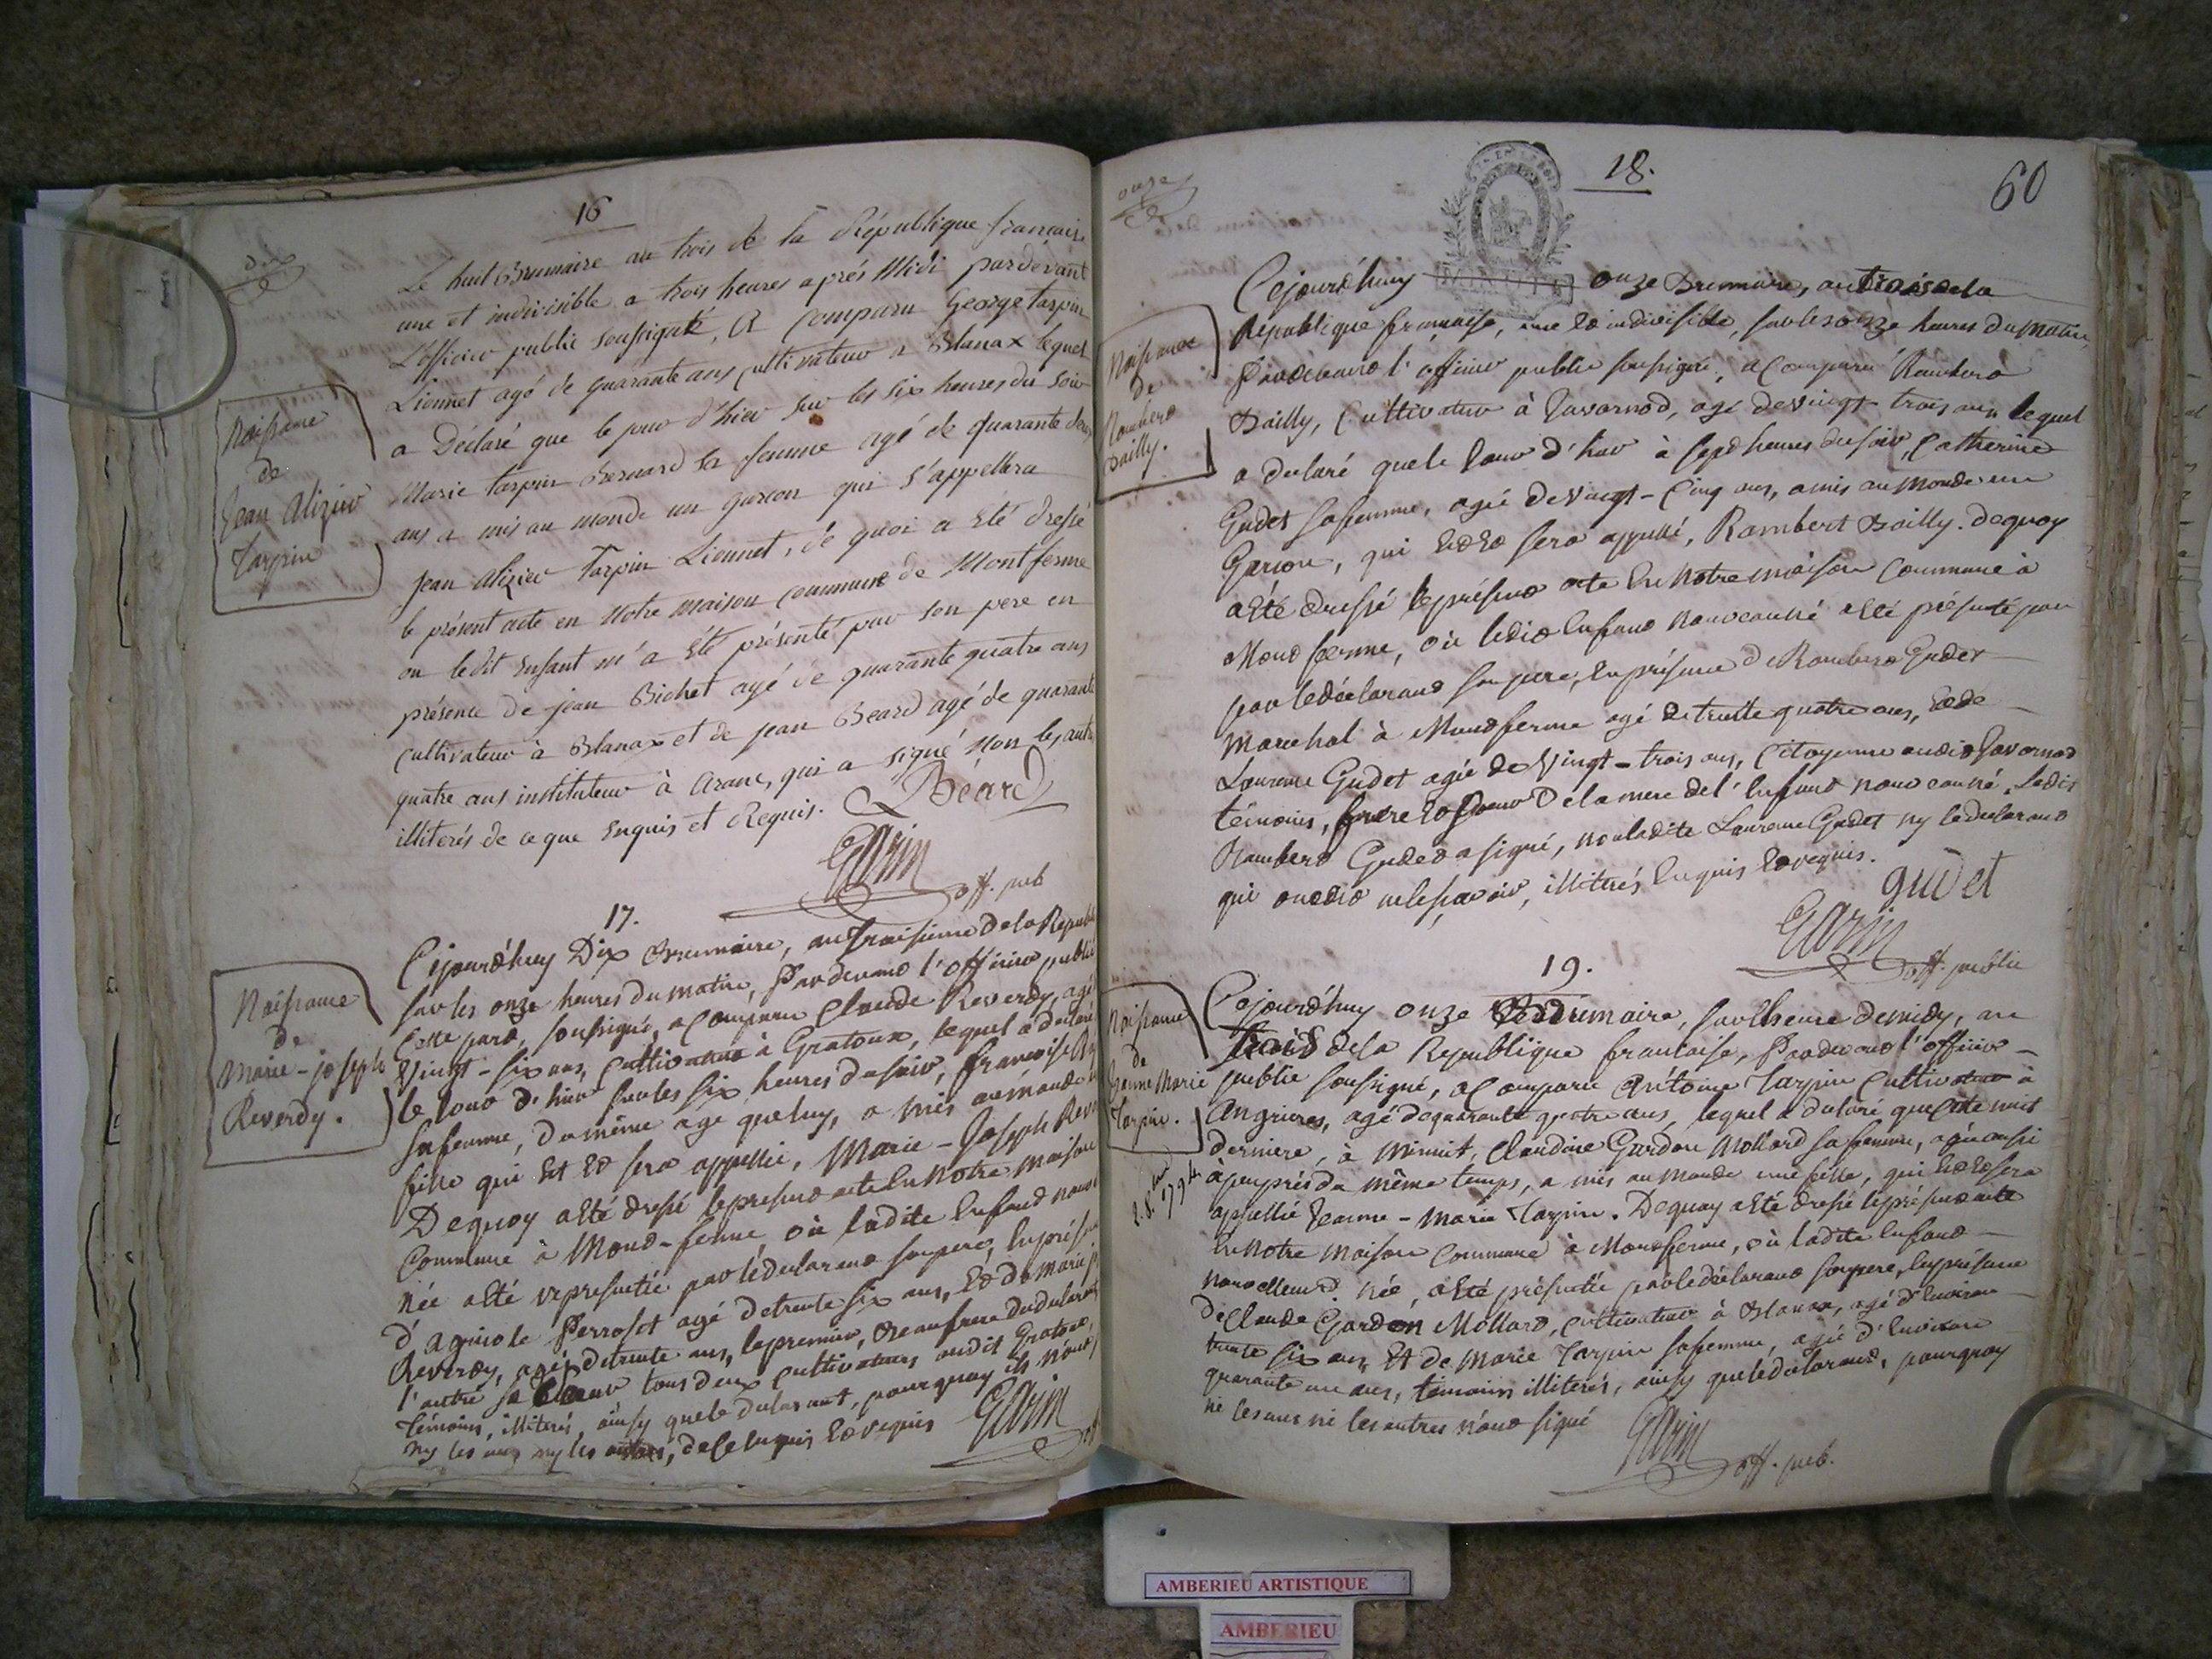 dix
16
Le huit Brumaire an trois de la République francaise
une et indivisible a trois heures aprés Midi pardevant
L'officier public soussigné, A Comparu George tarpin
Liennet agé de quarante ans cultivateur a Blanax lequel
a Déclaré que le jour d'hier sur les six heures du soir
Marie tarpin Bernard sa femme agé de quarante deux
ans a mis au monde un garcon qui s'appellera
jean Alizier Tarpin Liennet, de quoi a été dressé
le présent acte en Notre maison commune de Montferme
ou ledit Enfant m'a été présenté par son pere en
présence de jean Bichet agé de quarante quatre ans
cultivateur à Blanax et de jean Beard agé de quarante
quatre ans instituteur à Aranc, qui a signé Non les autres
illiterés de ce que Enquis et Requis. Béard
Garin
off. pub
Naissance
de
Jean Alizier
Tarpin
17.
Cejourd'huy Dix Brumaire, an troisieme de la Republ
sur les onze heures du matin, Pardevand l'officier public
soussigné, a Comparu Claude Reverdy, agé
Vingt-six ans, cultivateur à Gratoux, lequel a déclaré
le jour d'hier sur les six heures du soir, francoise
sa femme, du même age que luy, a mis au monde
fille qui Est Ed sera appellée, Marie-Joseph Rev
Dequoy a Eté dressé le presend acte En Notre maison
Commune à Mond-ferme, où ladite Enfand nouv
née a Eté representée par le declarand son pere, En prés
d'agricole Perroset agé de trente six ans, Ed de marie
Reverdy, agée de trente ans, le premier, Beaufrere du declarant
l'autre sa Sœur tous deux cultivateurs audit Gratoux,
Témoins, illiterés, ainsy que le declarant, pourquoy ils n'ond
ny les uns ny les autres, de ce Enquis Ed requis
Garin
off
Naissance
de
Marie-joseph
Reverdy.
onze
18.
60
Cejourd'huy onze Brumaire, an trois de la
République française, une Ed indivisible, sur les onze heures du matin,
Pardevand l'officier public soussigné, a Comparu Rambero
Bailly, Cultivateur à Javornod, agé de vingt-trois ans lequel
a déclaré que le jour d'hier à sept heures du soir, Catherine
Gudet sa femme, agée de vingt-Cinq ans, a mis au monde un
Garcon, qui Ed sera appellé, Rambert Bailly. dequoy
a Eté dressé le présend acte En Notre maison Commune à
Mond ferme, où ledid Enfand nouveau né a Eté présenté
par le déclarand son pere, En présence de Rambero Gudet
Marechal à Mondferme agé de trente quatre ans, Ed de
Laurence Gudet agée de Vingt-trois ans, Citoyenne audid Javornod
témoins, frere Ed soeur De la mere de l'Enfand nouveau né, Ledit
Rambero Guded a signé, non ladite Laurence Gudet ny le declarand
qui ond did ne le scavoir, illiterés Enquis Ed requis.
gudet
Garin
off. public
Naissance
de
Rambero
Bailly.
19.
Cejourd'huy onze Brumaire, sur l'heure de midy, an
trois de la Republique francaise, Pardevand l'officier
public soussigné, a Comparu Antoine Tarpin Cultivateur à
Angrieres, agé de quarante quatre ans, lequel a declaré que Cette nuit
derniere, à minuit, Claudine Gardon Mollard sa femme, agée aussi
à peu près du même temps, a mis au monde une fille, qui Ed sera
appellée Jeanne-Marie Tarpin. Dequoy a Eté dressé le présend acte
En Notre maison Commune à Mondferme, où ladite Enfand
nouvellemend née, a Eté présentée par le déclarand son pere, En présence
de Claude Gardon Mollard, cultivateur à Blanax, agé d'Environ
trente six ans, Et de Marie Tarpin sa femme, agée d'Environ
quarante un ans, témoins illiterés, ainsy que le declarand, pourquoy
ni les uns ni les autres n'ond signé
Garin
off. pub.
Naissance
de
Jeanne Marie
Tarpin.
AMBERIEU ARTISTIQUE
AMBERIEU